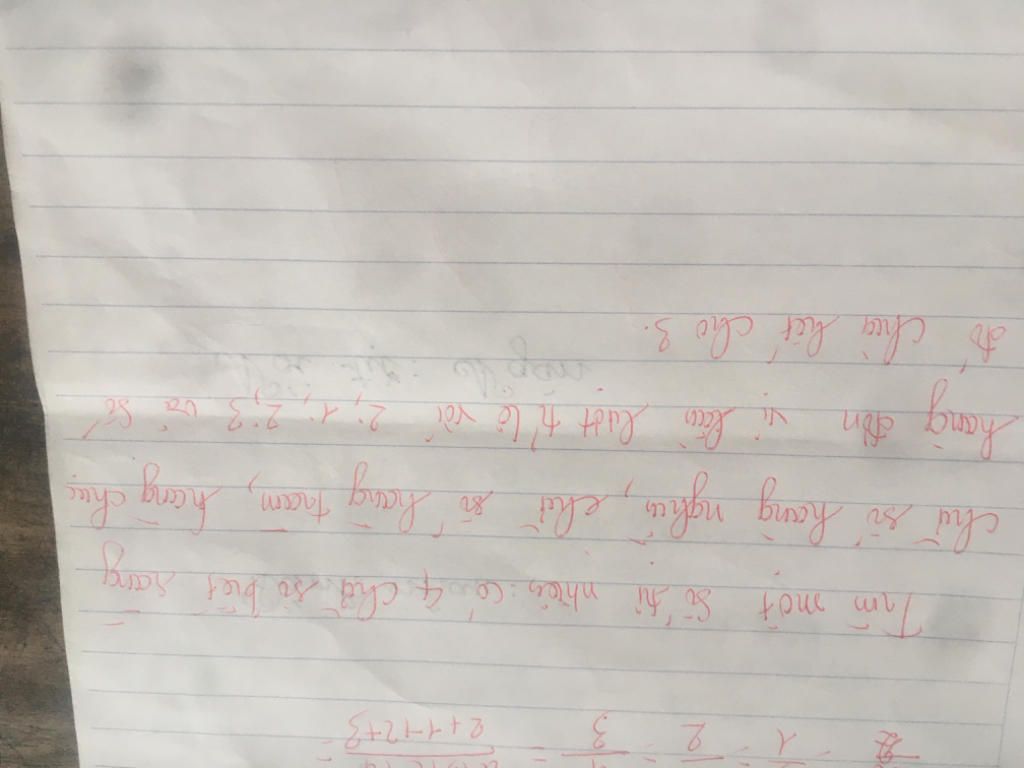 2 = 1 = 2 = 3 = 2+1+2+3 =
Tìm một số tự nhiên có 4 chữ số biết rằng
chữ số hàng nghìn, chữ số hàng trăm, hàng chục
hàng đơn vị lần lượt tỉ lệ với 2; 1; 2; 3 và số
đó chia hết cho 3.